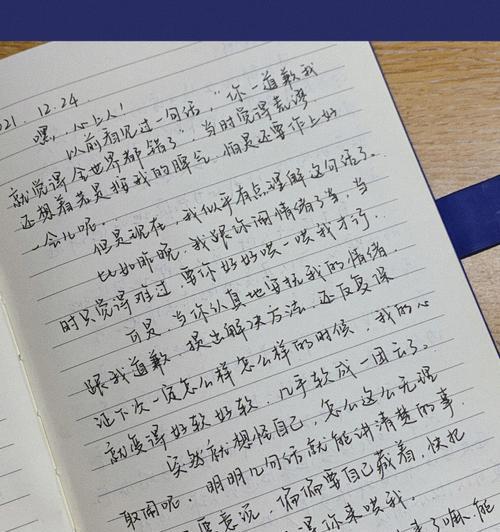 2021. 12. 24.
嘿，心上人！
以前看见过一句话，“你一道歉我
就觉得全世界都错了”，当时觉得荒谬
还想着若是按我的脾气，怕是还要作上好
一会儿呢。
但是现在，我似乎有点理解这句话了。
比如昨晚，我跟你闹情绪了事，当
时只觉得难过，要你好好哄一哄我才行
可是，当你认真地安抚我的情绪
跟我道歉，提出解决方法，还反复保
证下次一定怎么样怎么样的时候，我的心
就变得好软好软，几乎软成一团云了。
突然就想怪自己，怎么这么无理
取闹呢，明明几句话就能讲清楚的事
意说，偏偏要自己藏着，快
是你来哄我。
了嘛，能